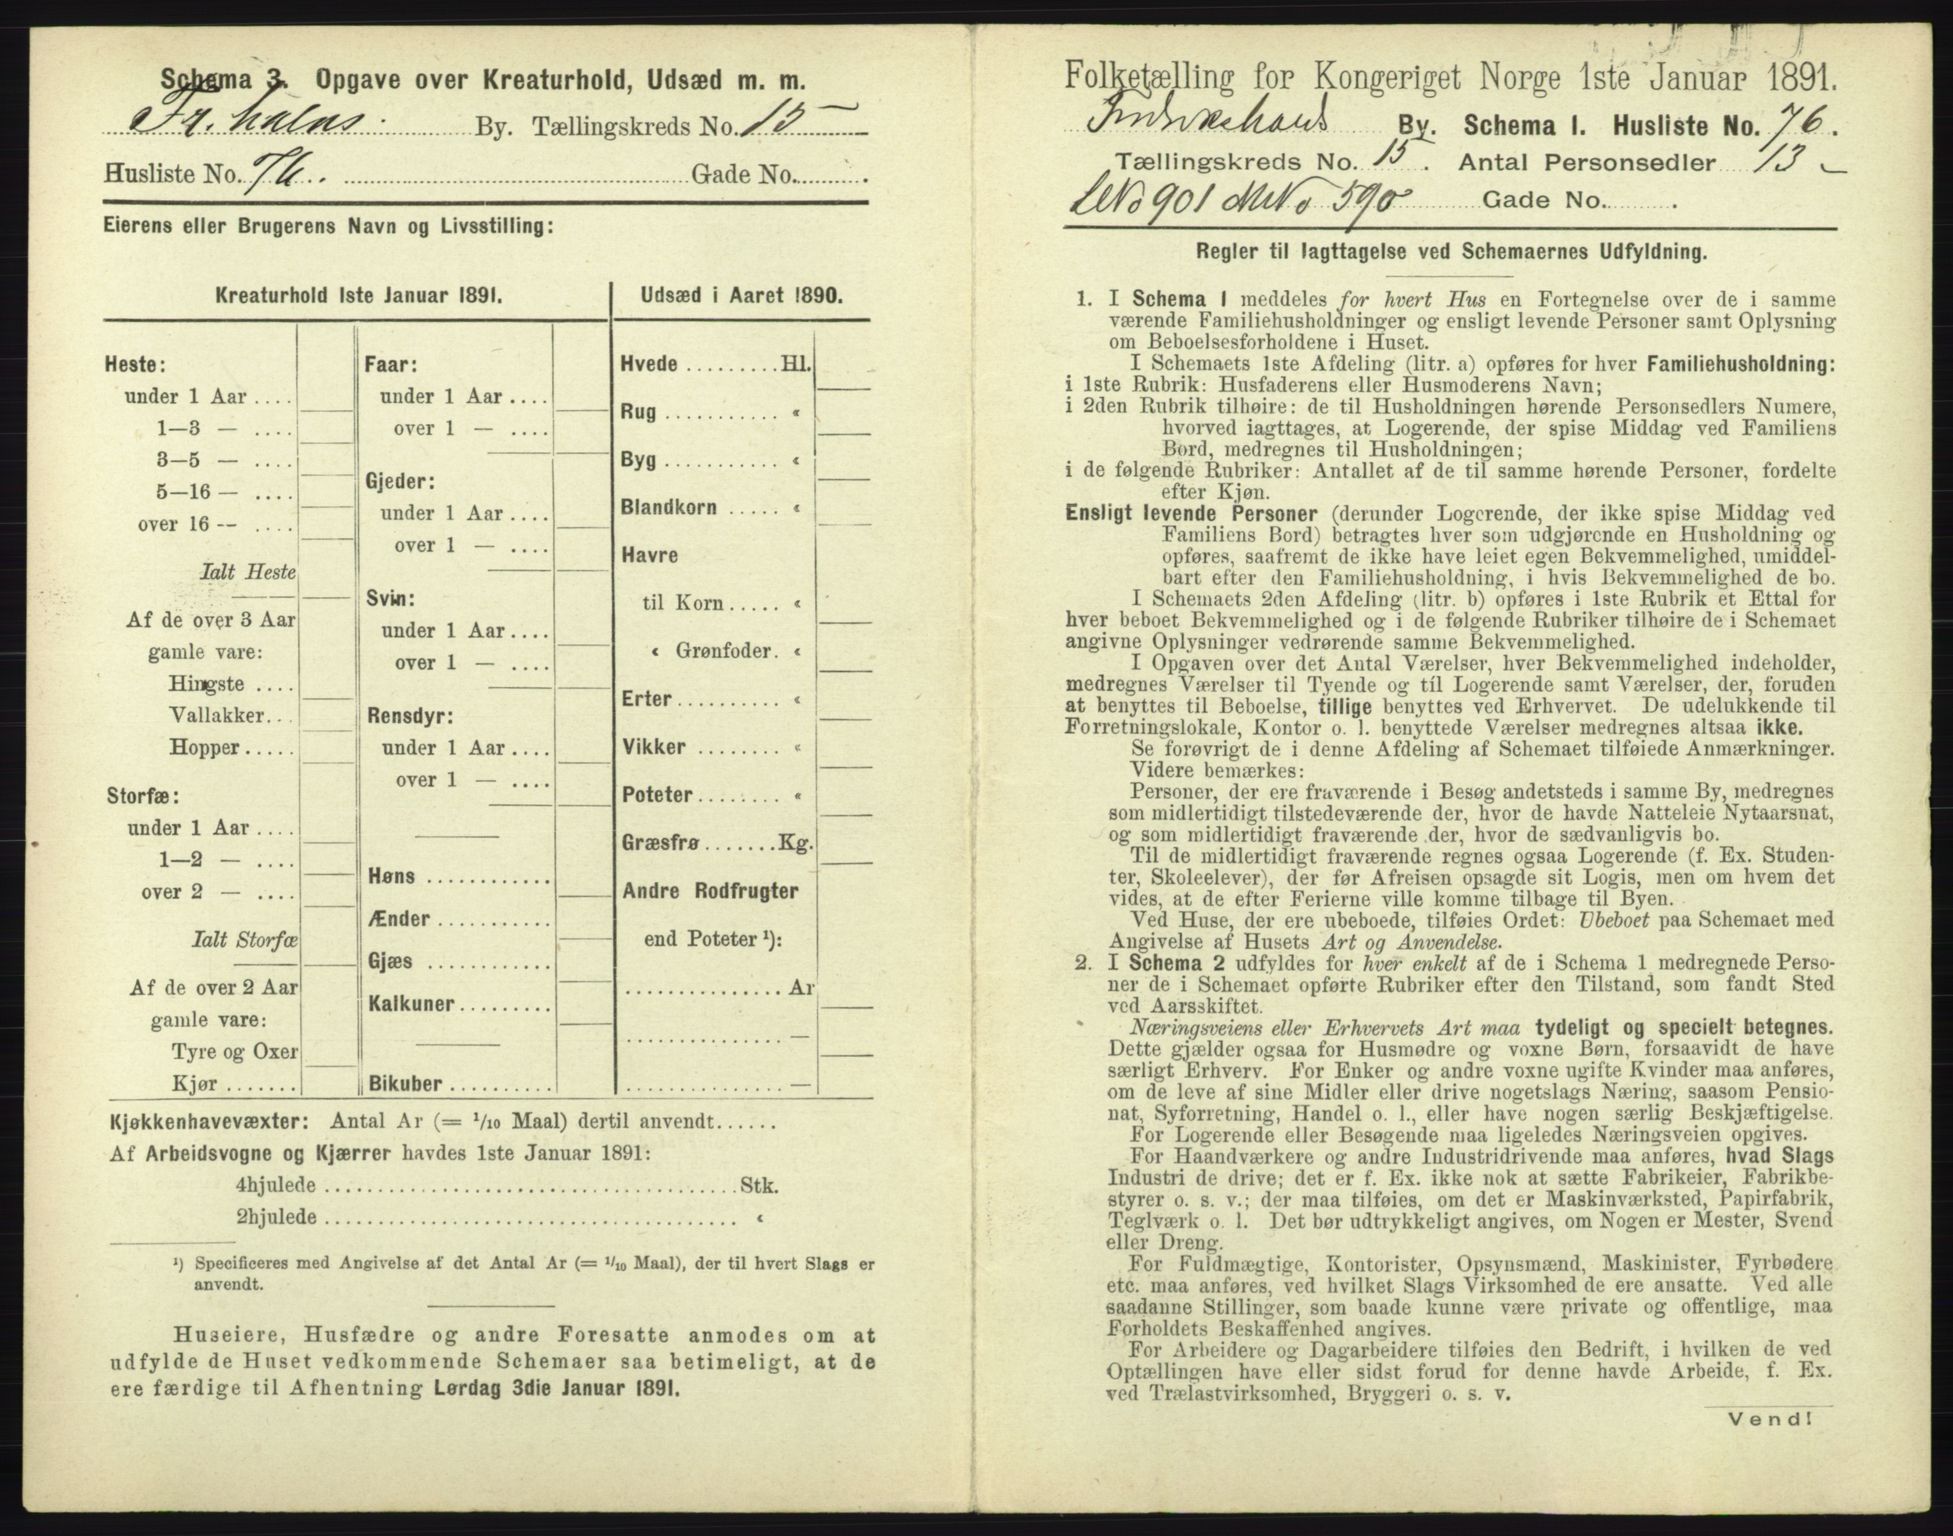 Schema 3. Opgave over Kreaturhold, Udsæd m. m.
Fr.halds By. Tællingskreds No. 15
Husliste No. 76. Gade No. .
Eierens eller Brugerens Navn og Livsstilling:
Kreaturhold 1ste Januar 1891.
Heste:
under 1 Aar ....
1—3 — ....
3—5 — ....
5—16 — ....
over 16 — ....
Ialt Heste
Af de over 3 Aar
gamle vare:
Hingste ....
Vallakker...
Hopper.....
Storfæ:
under 1 Aar ....
1—2 — ....
over 2 — ....
Ialt Storfæ
Af de over 2 Aar
gamle vare:
Tyre og Oxer
Kjør .......
Faar:
under 1 Aar ....
over 1 — ....
Gjeder:
under 1 Aar ....
over 1 — ....
Svin:
under 1 Aar ....
over 1 — ....
Rensdyr:
under 1 Aar ....
over 1 — ....
Høns ............
Ænder ...........
Gjæs ............
Kalkuner.........
Bikuber ..........
Udsæd i Aaret 1890.
Hvede ........Hl.
Rug ........... «
Byg ........... «
Blandkorn ..... «
Havre
til Korn..... «
« Grønfoder. «
Erter.......... «
Vikker ........ «
Poteter........ «
Græsfrø.......Kg.
Andre Rodfrugter
end Poteter ¹):
............... Ar
............... —
............... —
Kjøkkenhavevæxter: Antal Ar (= 1/10 Maal) dertil anvendt......
Af Arbeidsvogne og Kjærrer havdes 1ste Januar 1891:
4hjulede ........................................Stk.
2hjulede ........................................ «
¹) Specificeres med Angivelse af det Antal Ar (= 1/10 Maal), der til hvert Slags er
anvendt.
Huseiere, Husfædre og andre Foresatte anmodes om at
udfylde de Huset vedkommende Schemaer saa betimeligt, at de
ere færdige til Afhentning Lørdag 3die Januar 1891.
Folketælling for Kongeriget Norge 1ste Januar 1891.
Fredrikshalds By. Schema 1. Husliste No. 76.
Tællingskreds No. 15. Antal Personsedler 13
LNo 901 MNo 590 Gade No. .
Regler til Iagttagelse ved Schemaernes Udfyldning.
1. I Schema 1 meddeles for hvert Hus en Fortegnelse over de i samme
værende Familiehusholdninger og ensligt levende Personer samt Oplysning
om Beboelsesforholdene i Huset.
I Schemaets 1ste Afdeling (litr. a) opføres for hver Familiehusholdning:
i 1ste Rubrik: Husfaderens eller Husmoderens Navn;
i 2den Rubrik tilhøire: de til Husholdningen hørende Personsedlers Numere,
hvorved iagttages, at Logerende, der spise Middag ved Familiens
Bord, medregnes til Husholdningen;
i de følgende Rubriker: Antallet af de til samme hørende Personer, fordelte
efter Kjøn.
Ensligt levende Personer (derunder Logerende, der ikke spise Middag ved
Familiens Bord) betragtes hver som udgjørende en Husholdning og
opføres, saafremt de ikke have leiet egen Bekvemmelighed, umiddel-
bart efter den Familiehusholdning, i hvis Bekvemmelighed de bo.
I Schemaets 2den Afdeling (litr. b) opføres i 1ste Rubrik et Ettal for
hver beboet Bekvemmelighed og i de følgende Rubriker tilhøire de i Schemaet
angivne Oplysninger vedrørende samme Bekvemmelighed.
I Opgaven over det Antal Værelser, hver Bekvemmelighed indeholder,
medregnes Værelser til Tyende og til Logerende samt Værelser, der, foruden
at benyttes til Beboelse, tillige benyttes ved Erhvervet. De udelukkende til
Forretningslokale, Kontor o. l. benyttede Værelser medregnes altsaa ikke.
Se forøvrigt de i denne Afdeling af Schemaet tilføiede Anmærkninger.
Videre bemærkes:
Personer, der ere fraværende i Besøg andetsteds i samme By, medregnes
som midlertidigt tilstedeværende der, hvor de havde Natteleie Nytaarsnat,
og som midlertidigt fraværende der, hvor de sædvanligvis bo.
Til de midlertidigt fraværende regnes ogsaa Logerende (f. Ex. Studen-
ter, Skoleelever), der før Afreisen opsagde sit Logis, men om hvem det
vides, at de efter Ferierne ville komme tilbage til Byen.
Ved Huse, der ere ubeboede, tilføies Ordet: Ubeboet paa Schemaet med
Angivelse af Husets Art og Anvendelse.
2. I Schema 2 udfyldes for hver enkelt af de i Schema 1 medregnede Perso-
ner de i Schemaet opførte Rubriker efter den Tilstand, som fandt Sted
ved Aarsskiftet.
Næringsveiens eller Erhvervets Art maa tydeligt og specielt betegnes.
Dette gjælder ogsaa for Husmødre og voxne Børn, forsaavidt de have
særligt Erhverv. For Enker og andre voxne ugifte Kvinder maa anføres,
om de leve af sine Midler eller drive nogetslags Næring, saasom Pensio-
nat, Syforretning, Handel o. l., eller have nogen særlig Beskjæftigelse.
For Logerende eller Besøgende maa ligeledes Næringsveien opgives.
For Haandværkere og andre Industridrivende maa anføres, hvad Slags
Industri de drive; det er f. Ex. ikke nok at sætte Fabrikeier, Fabrikbe-
styrer o. s. v.; der maa tilføies, om det er Maskinværksted, Papirfabrik,
Teglværk o. l. Det bør udtrykkeligt angives, om Nogen er Mester, Svend
eller Dreng.
For Fuldmægtige, Kontorister, Opsynsmænd, Maskinister, Fyrbødere
etc. maa anføres, ved hvilket Slags Virksomhed de ere ansatte. Ved alle
saadanne Stillinger, som baade kunne være private og offentlige, maa
Forholdets Beskaffenhed angives.
For Arbeidere og Dagarbeidere tilføies den Bedrift, i hvilken de ved
Optællingen have eller sidst forud for denne havde Arbeide, f. Ex.
ved Trælastvirksomhed, Bryggeri o. s. v.
Vend!